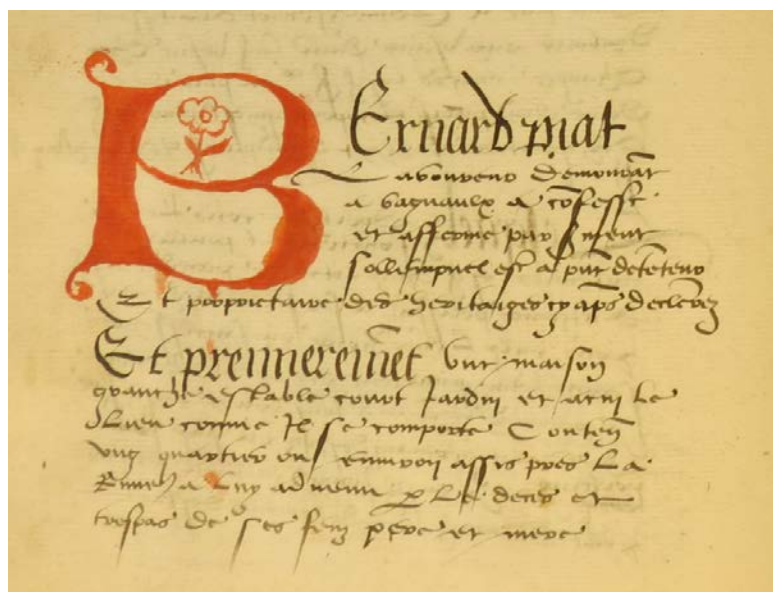 BErnard piat
Laboureur demourāt
a bagnaulx a cōfesse
et afferme par sment
sollempnel est a pnt detēteur
Et proprietaire des heritaiges cy apš declerez
Et premieremēt une maison
granche estable court Jardin et
Lieu comme Il se comporte Conteñ
ung quartier ou environ assis pres La
a luy advenu p Le deces et
trespas de ses feuz pere et mere